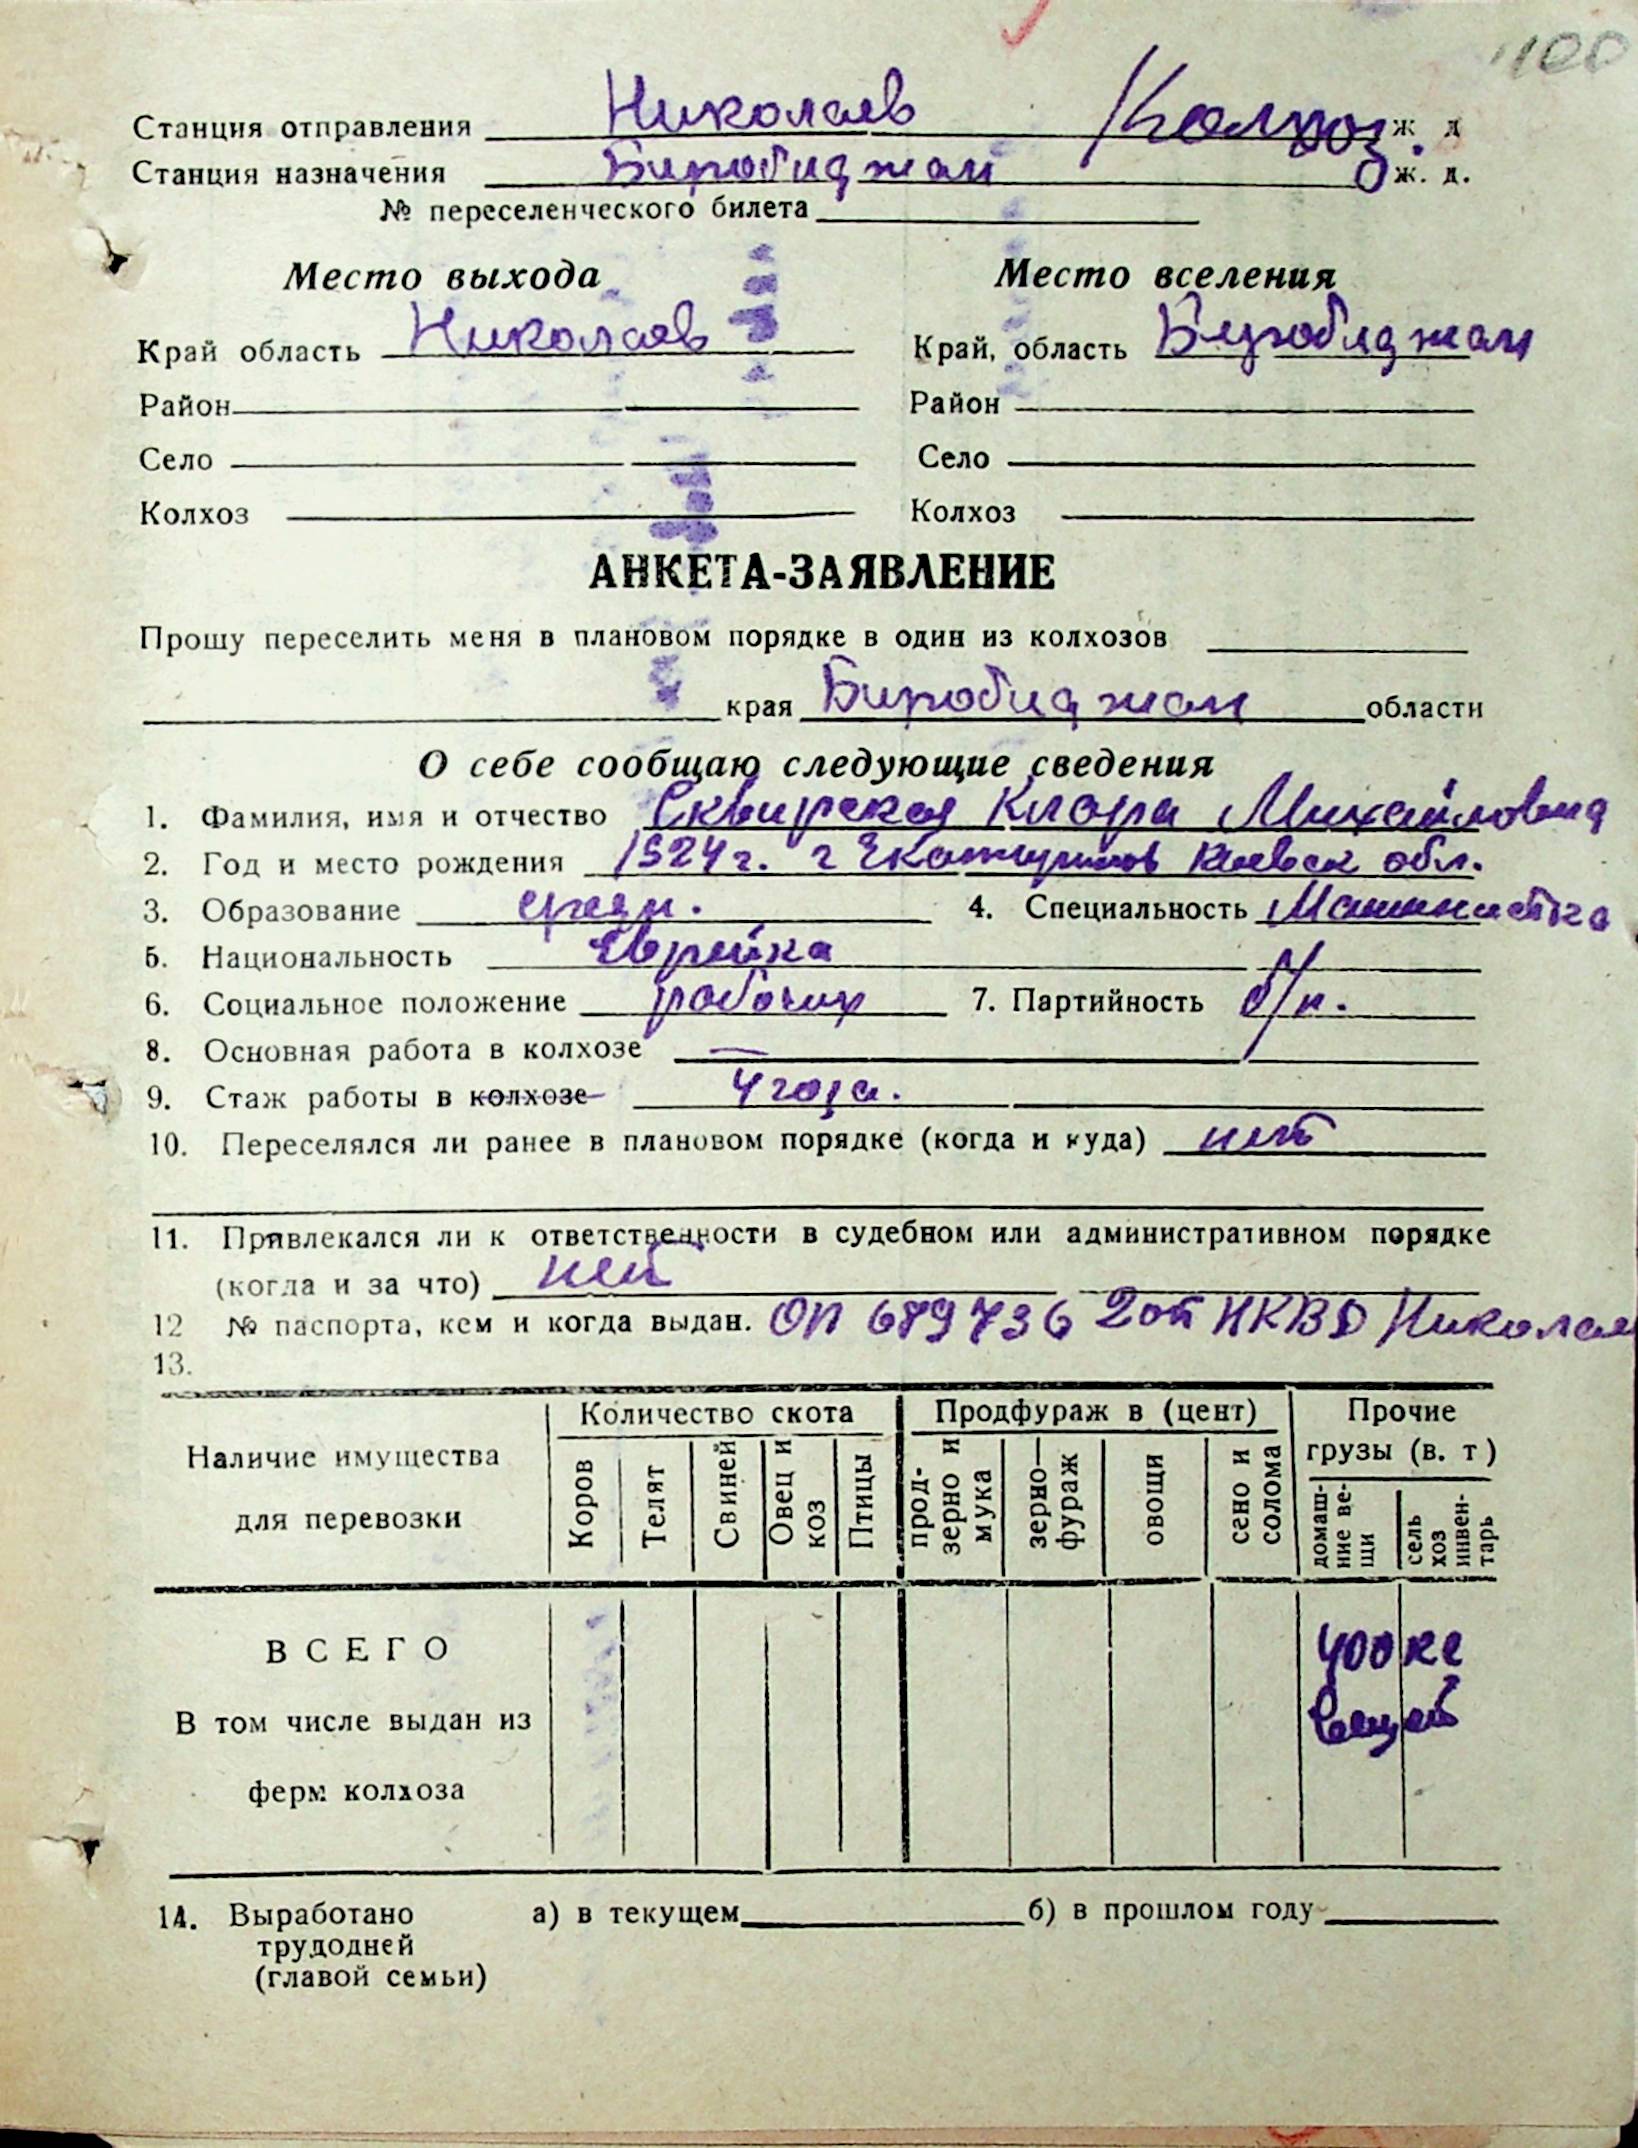 100
Станция отправления Николаев Колхоз ж. д
Станция назначения Биробиджан ж. д.
№ переселенческого билета
Место выхода Место вселения
Край область Николаев Край, область Биробиджан
Район Район
Село Село
Колхоз Колхоз
АНКЕТА-ЗАЯВЛЕНИЕ
Прошу переселить меня в плановом порядке в один из колхозов
края Биробиджан области
О себе сообщаю следующие сведения
1. Фамилия, имя и отчество Сквирская Клара Михайловна
2. Год и место рождения 1924 г. г Киевск обл.
3. Образование средн. 4. Специальность Машинистка
5. Национальность Еврейка
6. Социальное положение рабочих 7. Партийность б/п.
8. Основная работа в колхозе —
9. Стаж работы в колхозе 4 года.
10. Переселялся ли ранее в плановом порядке (когда и куда) нет
11. Привлекался ли к ответственности в судебном или административном порядке
(когда и за что) нет
12 № паспорта, кем и когда выдан. ОП 689736 2 от НКВД Николаев
13.
Наличие имущества для перевозки
Количество скота Продфураж в (цент) Прочие грузы (в. т)
Коров Телят Свиней Овец и коз Птицы прод-зерно и мука зерно—фураж овощи сено и солома домаш-ние ве-щи сель хоз инвен-тарь
ВСЕГО 400 кг
В том числе выдан из вещей
ферм колхоза
14. Выработано а) в текущем б) в прошлом году
трудодней
(главой семьи)